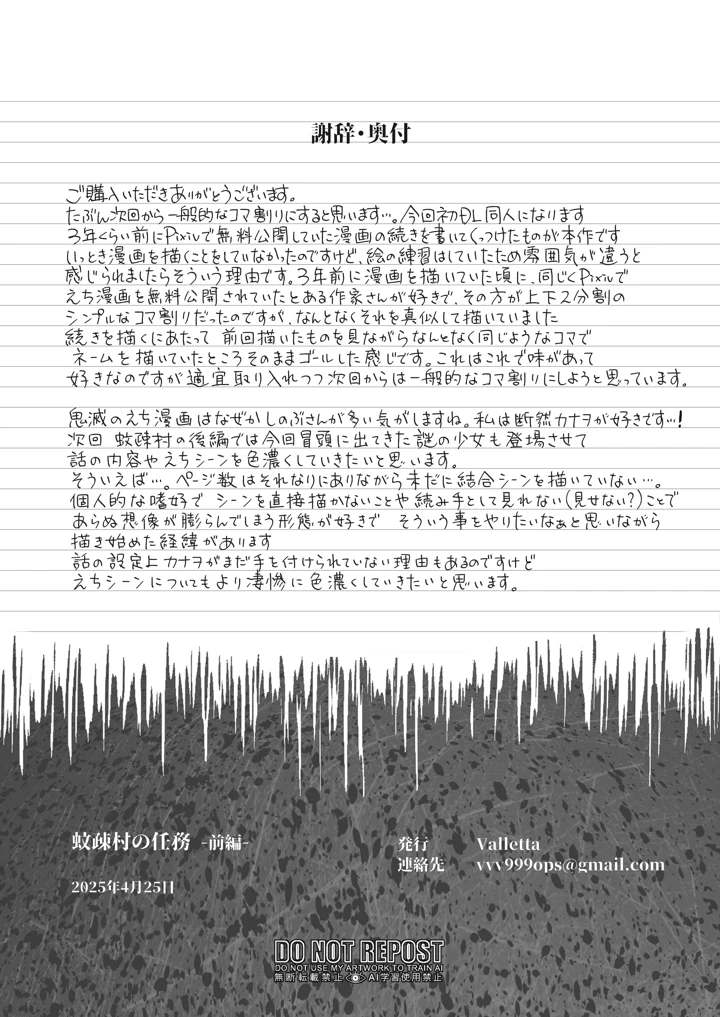 謝辞・奥付
ご購入いただきありがとうございます。
たぶん次回から一般的なコマ割りにすると思います…。今回初DL同人になります
3年くらい前にPixivで無料公開していた漫画の続きを書いてくっつけたものが本作です
いっとき漫画を描くことをしていなかったのですけど、絵の練習はしていたため雰囲気が違うと
感じられましたらそういう理由です。3年前に漫画を描いていた頃に、同じくPixivで
えち漫画を無料公開されていたとある作家さんが好きで、その方が上下2分割の
シンプルなコマ割りだったのですが、なんとなくそれを真似して描いていました
続きを描くにあたって 前回描いたものを見ながらなんとなく同じようなコマで
ネームを描いていたところそのままゴールした感じです。これはこれで味があって
好きなのですが適宜取り入れつつ次回からは一般的なコマ割りにしようと思っています。
鬼滅のえち漫画はなぜかしのぶさんが多い気がしますね。私は断然カナヲが好きです…!
次回 蚊疎村の後編では今回冒頭に出てきた謎の少女も登場させて
話の内容やえちシーンを色濃くしていきたいと思います。
そういえば…。ページ数はそれなりにありながら未だに結合シーンを描いていない…。
個人的な嗜好で シーンを直接描かないことや読み手として見れない(見せない?)ことで
あらぬ想像が膨らんでしまう形態が好きで そういう事をやりたいなぁと思いながら
描き始めた経緯があります
話の設定上カナヲがまだ手を付けられていない理由もあるのですけど
えちシーンについてもより凄惨に色濃くしていきたいと思います。
蚊疎村の任務 -前編-
2025年4月25日
発行 Valletta
連絡先 vvv999ops@gmail.com
DO NOT REPOST
DO NOT USE MY ARTWORK TO TRAIN AI
無断転載禁止 AI学習使用禁止